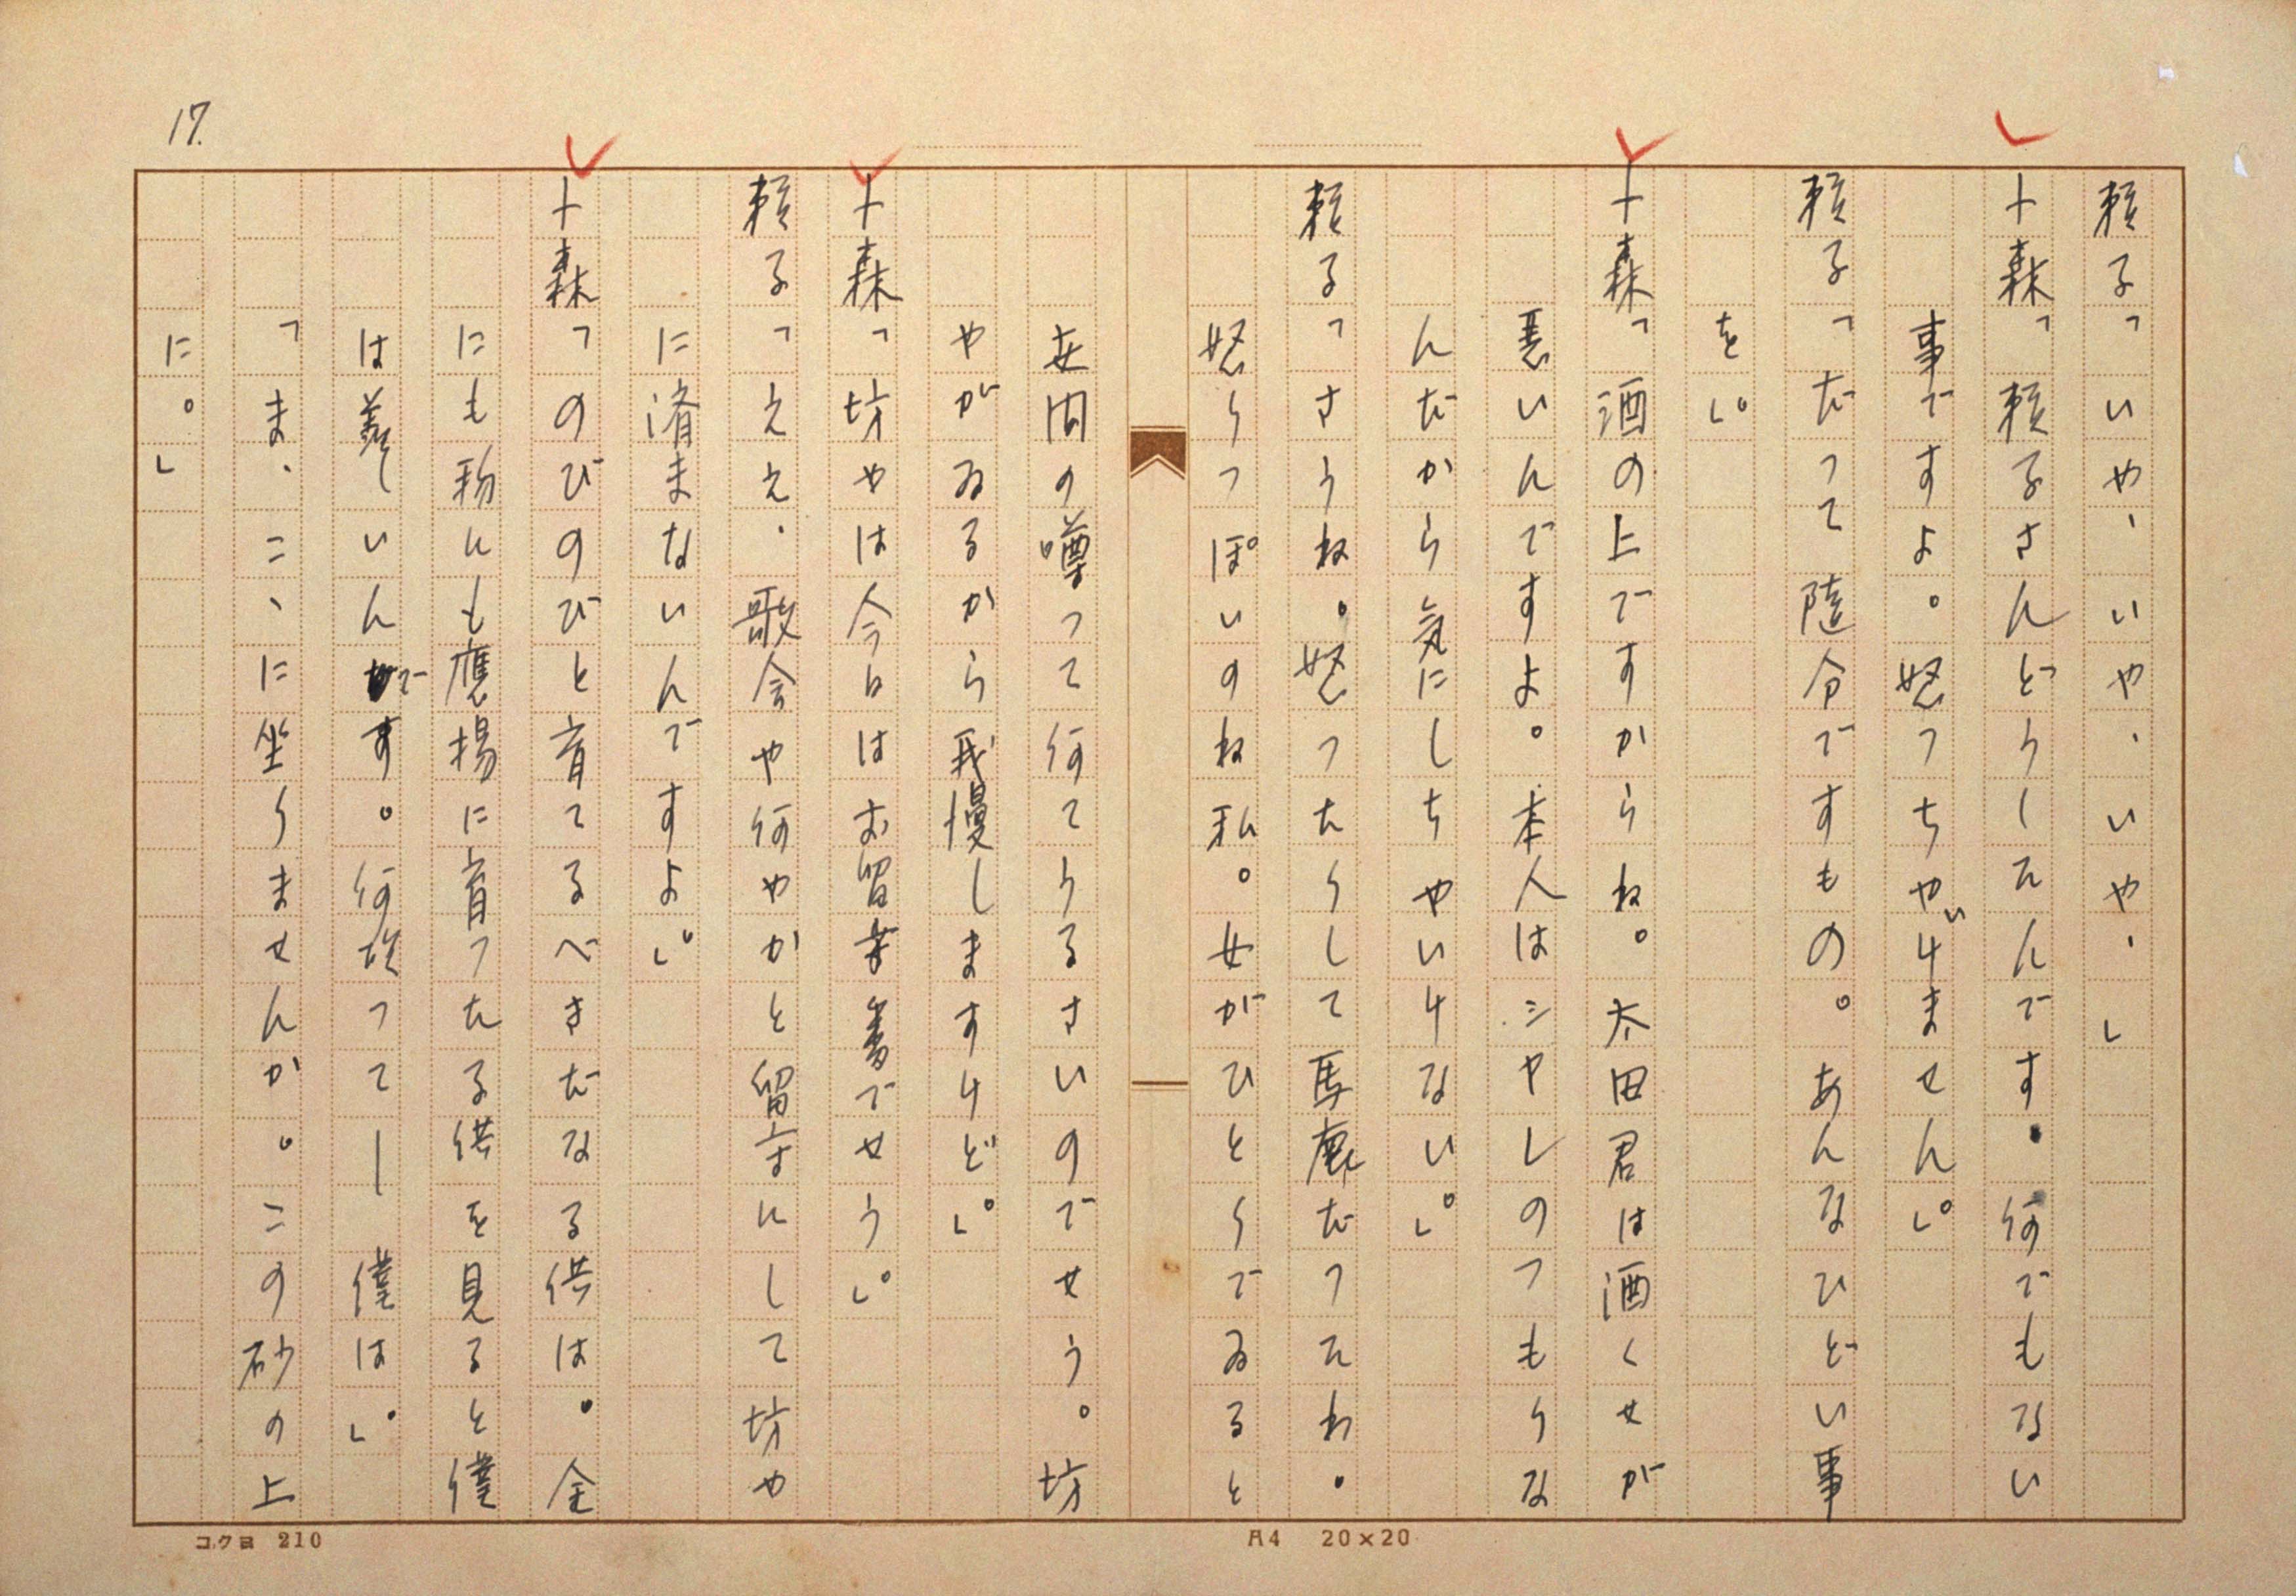 17.
頼子「いや、いや、いや、」
十森「頼子さんどうしたんです。何でもない
事ですよ。怒つちやいけません。」
頼子「だつて随分ですもの。あんなひどい事
を。」
十森「酒の上ですからね。太田君は酒くせが
悪いんですよ。本人はシヤレのつもりな
んだから気にしちやいけない。」
頼子「さうね。怒つたりして馬鹿だつたわ。
怒りつぽいのね私。女がひとりでゐると
世間の噂つて何てうるさいのでせう。坊
やがゐるから我慢しますけど。」
十森「坊やは今日はお留守番でせう。」
頼子「ええ、歌会や何やかと留守にして坊や
に済まないんですよ。」
十森「のびのびと育てるべきだな子供は。金
にも物にも應揚に育つた子供を見ると僕
は羨しいんです。何故つてー僕は。」
「ま、こゝに坐りませんか。この砂の上
に。」
コクヨ 210
A4 20×20